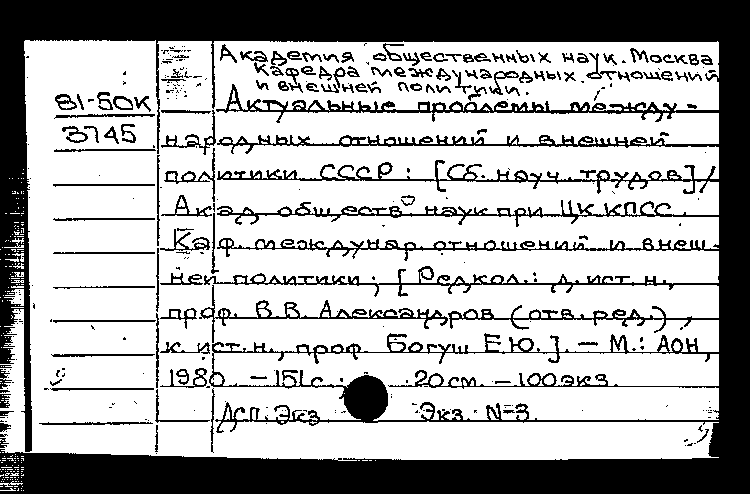 Академия общественных наук. Москва.
Кафедра международных отношений
и внешней политики.
81-50К
3745
Актуальные проблемы между-
народных отношений и внешней
политики СССР : [Сб. науч. трудов] /
Акад. обществ. наук при ЦК КПСС.
Каф. междунар. отношений и внеш-
ней политики ; [Редкол.: д. ист. н.,
проф. В.В. Александров (отв. ред.) ,
к. ист. н., проф. Богуш Е.Ю.]. — М.: АОН,
1980. — 151 с. ; 20 см. — 100 экз.
Дсп. Экз Экз. N-3.